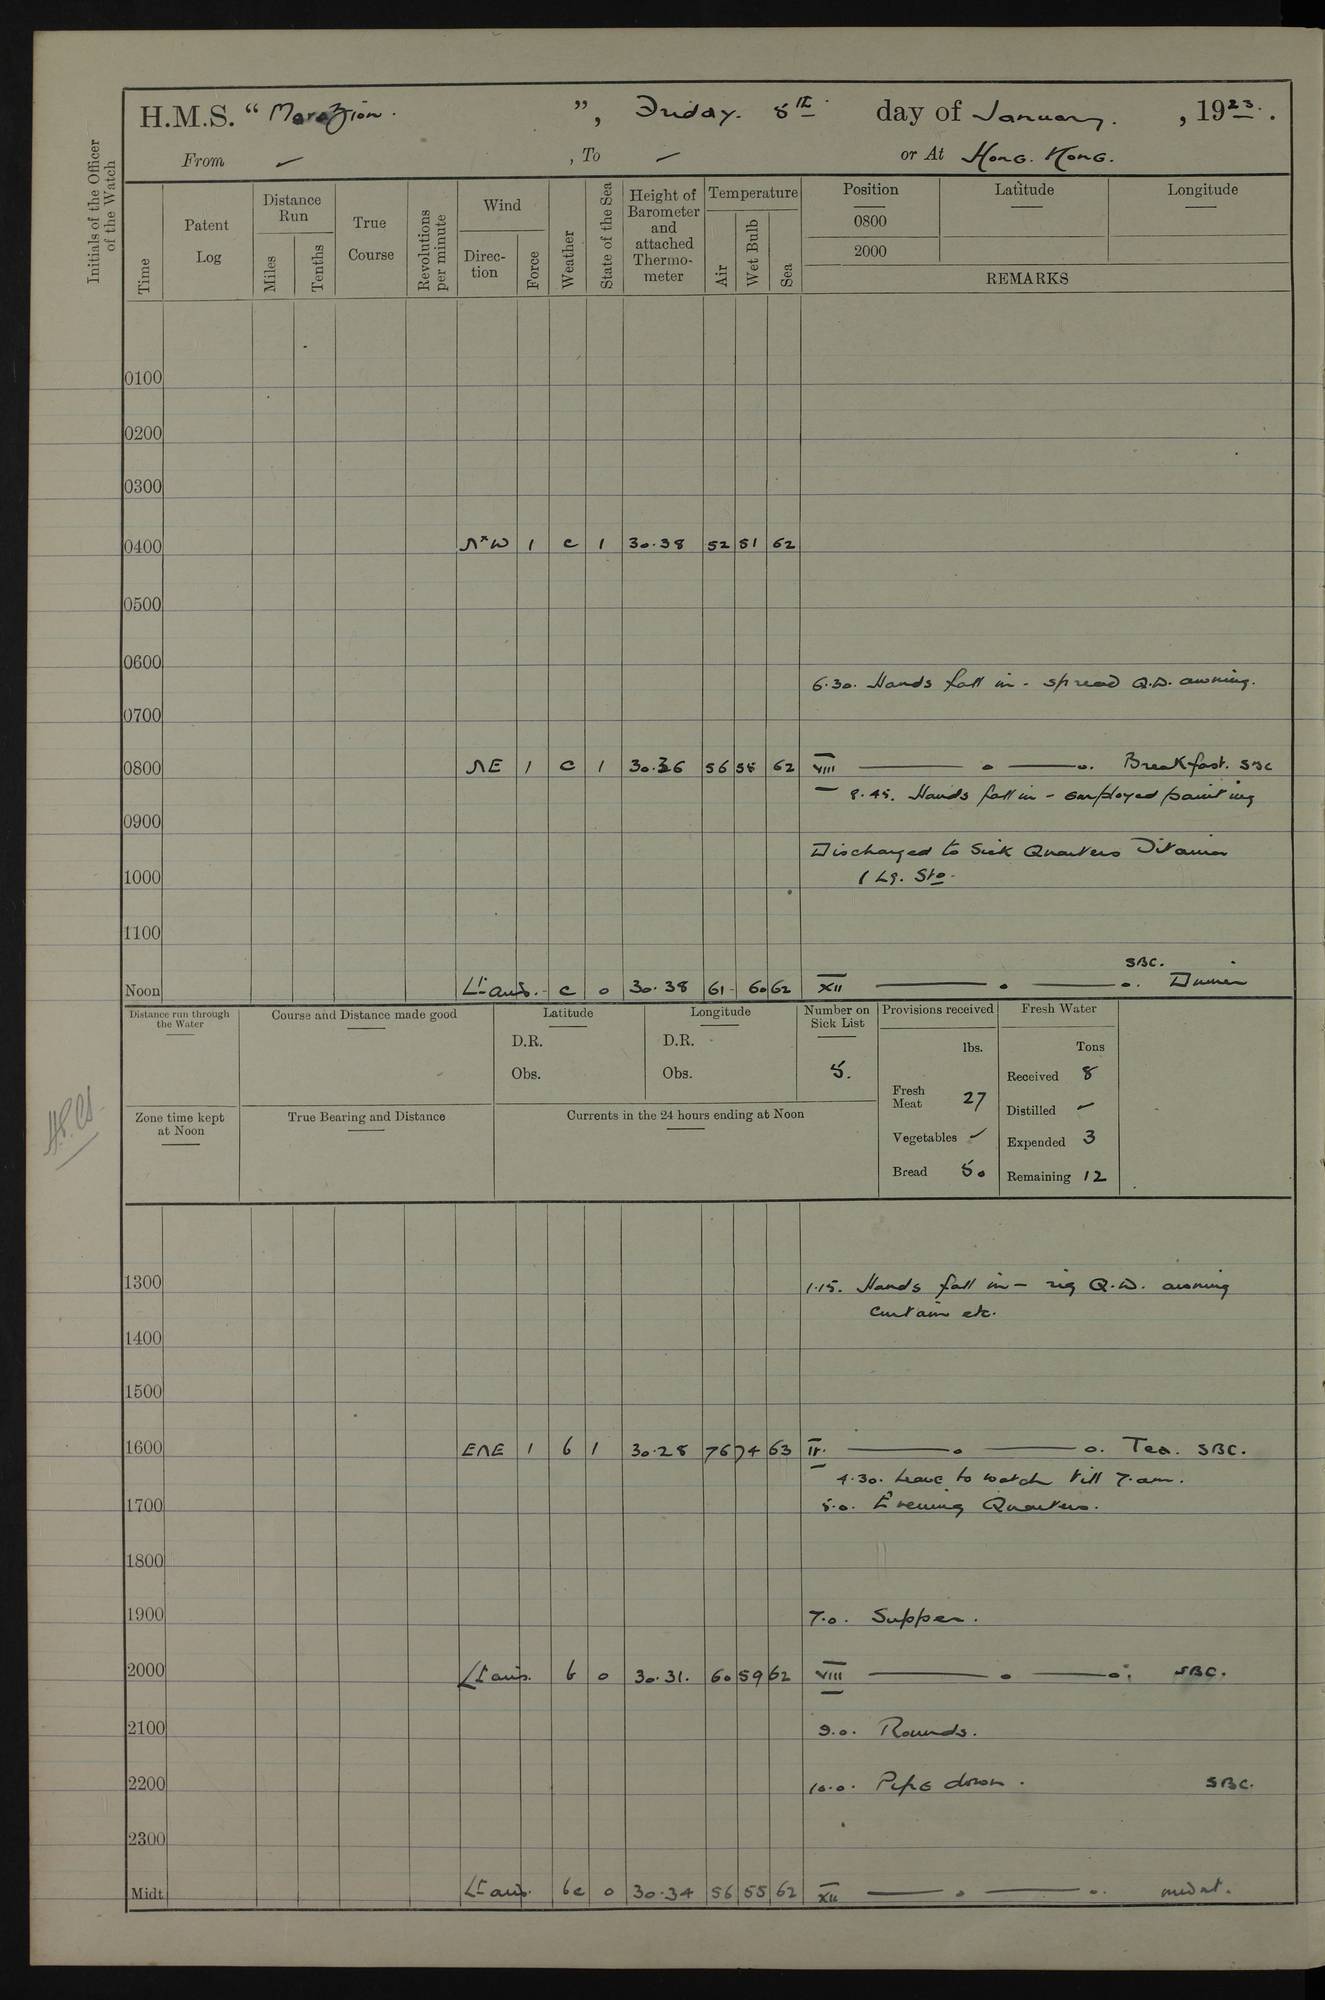 H.M.S. “ Marazion. ”, Friday. 5th day of January. , 1923.
From ✓ , To ✓ or At Hong. Kong.
Initials of the Officer of the Watch
Time
Patent Log
Distance Run
Miles
Tenths
True Course
Revolutions per minute
Wind
Direc-tion
Force
Weather
State of the Sea
Height of Barometer and attached Thermo-meter
Temperature
Air
Wet Bulb
Sea
Position Latitude Longitude
0800
2000
REMARKS
0100
0200
0300
0400 N×W 1 c 1 30.38 52 51 62
0500
0600
6.30. Hands fall in - spread Q.D. awning.
0700
0800 NE 1 c 1 30.36 56 55 62 VIII — o — o. Breakfast. SBC
8.45. Hands fall in - employed painting
0900
Discharged to Sick Quarters Titania
1000
1 Lg. Sto.
1100
SBC.
Noon Lt airs. - c o 30.38 61 - 60 62 XII — o — o. Dinner
Distance run through the Water
Course and Distance made good
Latitude
D.R.
Obs.
Longitude
D.R.
Obs.
Number on Sick List
5.
Provisions received
lbs.
Fresh Meat 27
Vegetables ✓
Bread 50
Fresh Water
Tons
Received 8
Distilled ✓
Expended 3
Remaining 12
Zone time kept at Noon
True Bearing and Distance
Currents in the 24 hours ending at Noon
1300
1.15. Hands fall in - rig Q.D. awning
curtain etc.
1400
1500
1600 ENE 1 b 1 30.28 76 74 63 IV. — o — o. Tea. SBC.
4.30. Leave to watch till 7.am.
1700
5.0. Evening Quarters.
1800
1900
7.0. Supper.
2000 Lt airs. b o 30.31. 60 59 62 VIII — o — o. SBC.
2100
9.0. Rounds.
2200
10.0. Pipe down. SBC.
2300
Midt. Lt airs. bc o 30.34 56 55 62 XII — o — o.